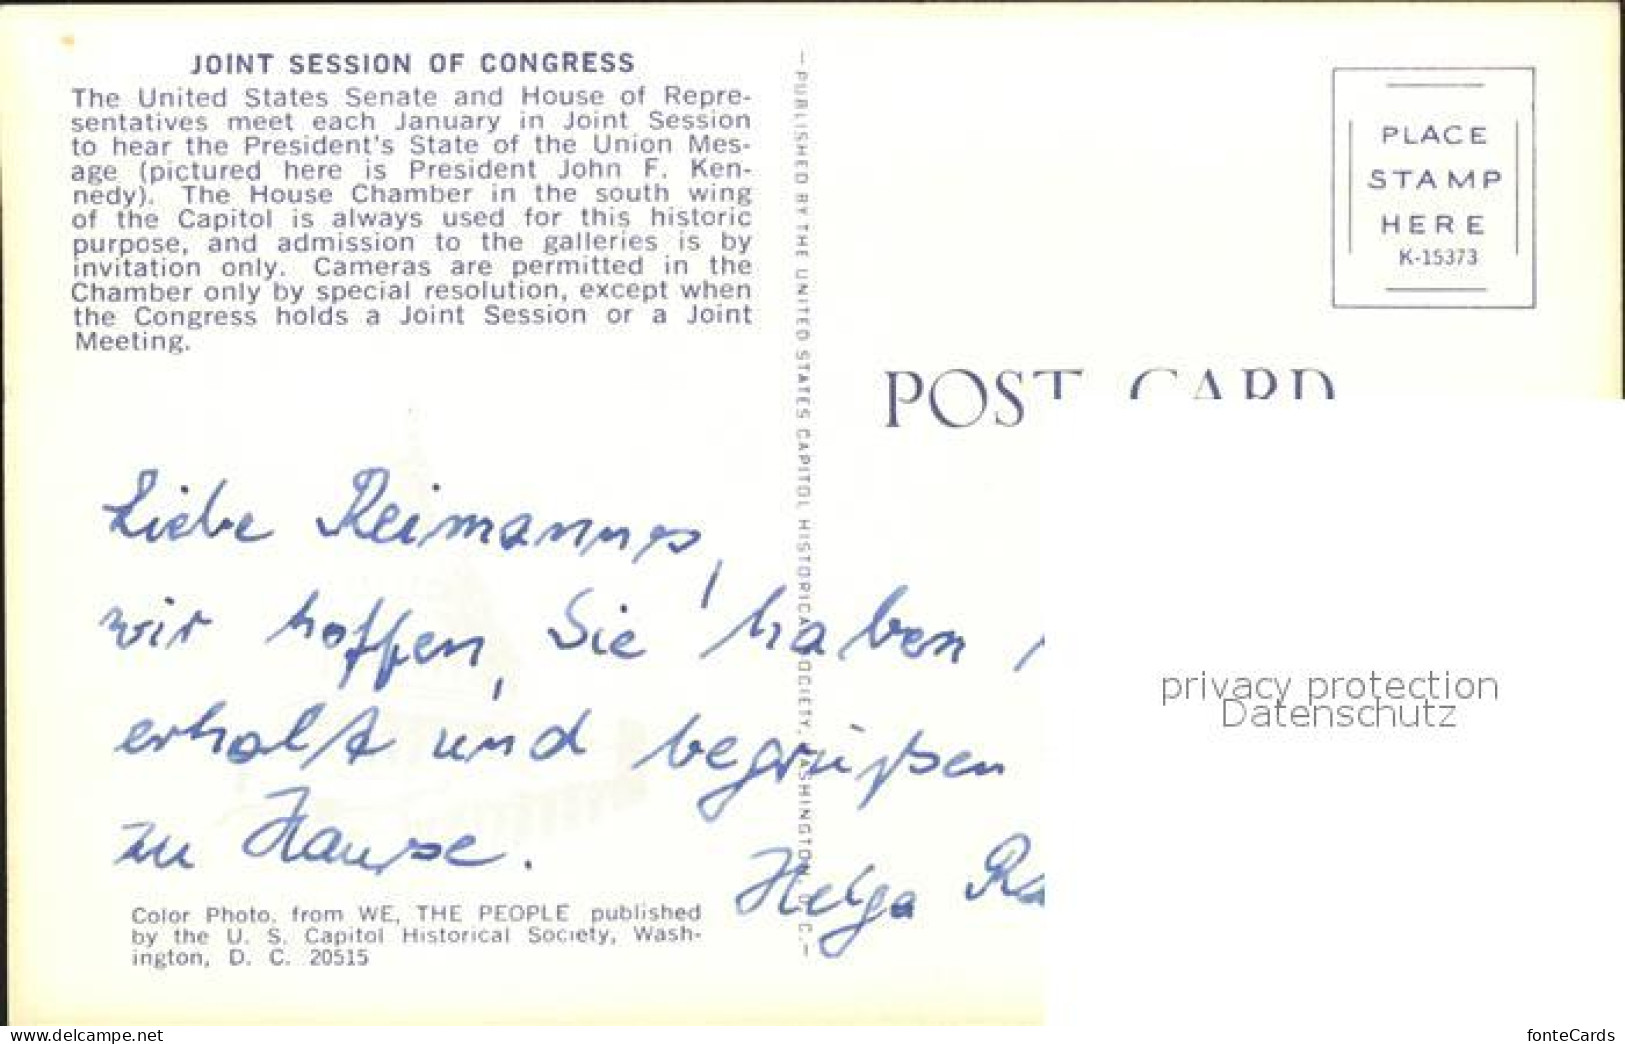 JOINT SESSION OF CONGRESS
The United States Senate and House of Repre-
sentatives meet each January in Joint Session
to hear the President's State of the Union Mes-
age (pictured here is President John F. Ken-
nedy). The House Chamber in the south wing
of the Capitol is always used for this historic
purpose, and admission to the galleries is by
invitation only. Cameras are permitted in the
Chamber only by special resolution, except when
the Congress holds a Joint Session or a Joint
Meeting.
— PUBLISHED BY THE UNITED STATES CAPITOL HISTORICAL SOCIETY, WASHINGTON, D. C. —
PLACE
STAMP
HERE
K-15373
POST CARD
Liebe Reimanns,
wir hoffen, Sie haben
erholt und begrüßen
zu Hause.
Helga
Color Photo. from WE, THE PEOPLE published
by the U. S. Capitol Historical Society, Wash-
ington, D. C. 20515
privacy protection
Datenschutz
www.delcampe.net
fonteCards